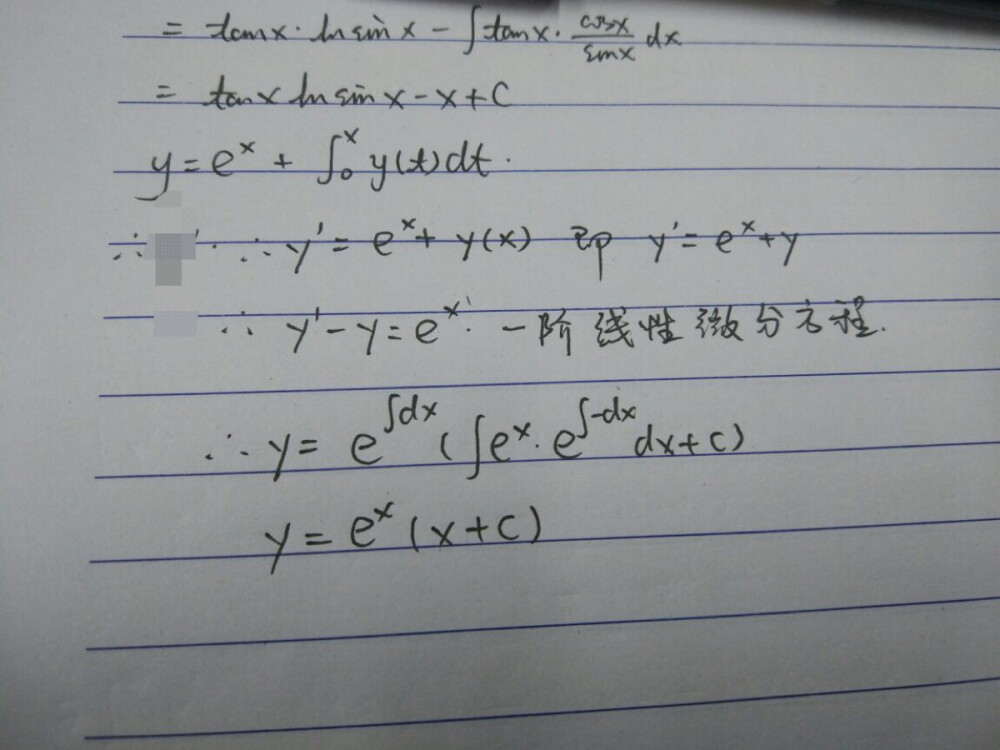 = tanx · ln sin x - ∫tanx · cosx/sinx dx
= tanx ln sin x - x + C
y = eˣ + ∫₀ˣ y(t)dt.
∴ ∴ y' = eˣ + y(x) 即 y' = eˣ + y
∴ y' - y = eˣ. 一阶线性微分方程.
∴ y = e^∫dx (∫eˣ · e^∫-dx dx + C)
y = eˣ (x + C)